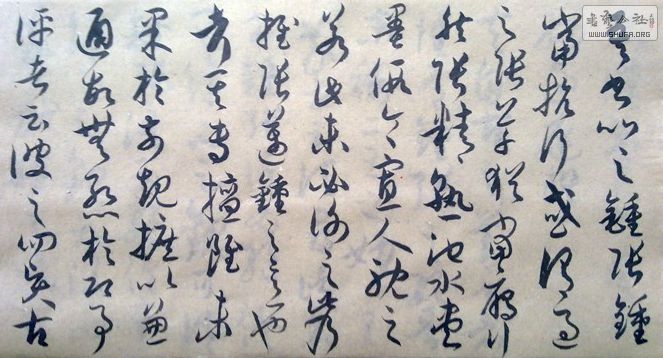 吾書比之鍾張鍾
當抗行或謂過
之張草猶當鴈行
然張精熟池水盡
墨假令寡人耽之
若此未必謝之此乃
推張邁鍾之意也
考其專擅雖未
果於前規摭以兼
通故無慙於即事
評者云彼之四賢古
書藝公社
WWW.SHUFA.ORG